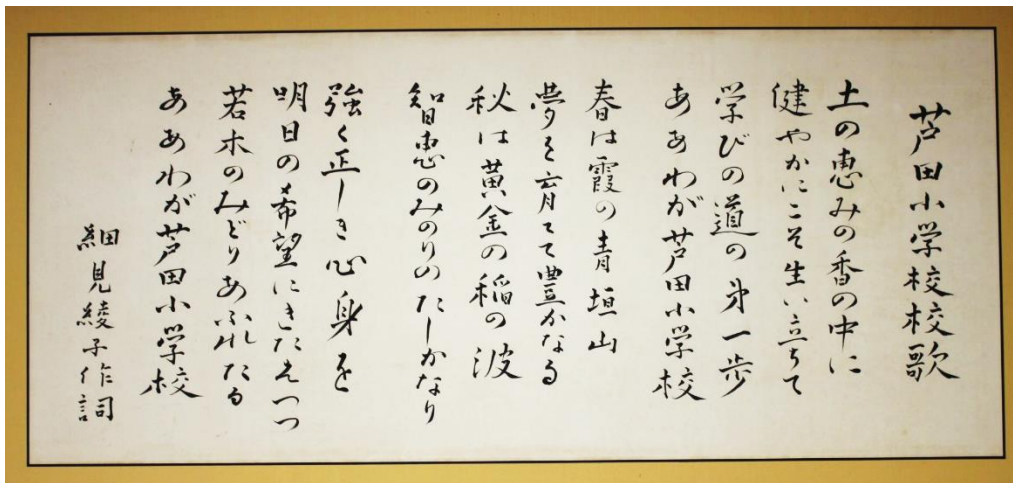 芦田小学校校歌
土の恵みの香の中に
健やかにこそ生い立ちて
学びの道の第一歩
ああわが芦田小学校
春は霞の青垣山
夢を育てて豊かなる
秋は黄金の稲の波
智恵のみのりのたしかなり
強く正しき心身を
明日の希望にきたえつつ
若木のみどりあふれたる
ああわが芦田小学校
細見綾子作詞